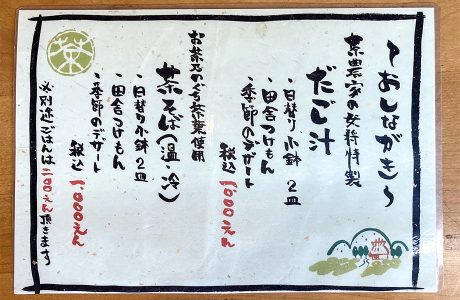 〜おしながき〜
茶農家の女将特製
だご汁
・日替り小鉢2皿
・田舎つけもん
・季節のデザート
税込1,000えん
お茶乃のぐち茶葉使用
茶そば(温・冷)
・日替り小鉢2皿
・田舎つけもん
・季節のデザート
税込1,000えん
※別途ごはんは100えん頂きます
茶